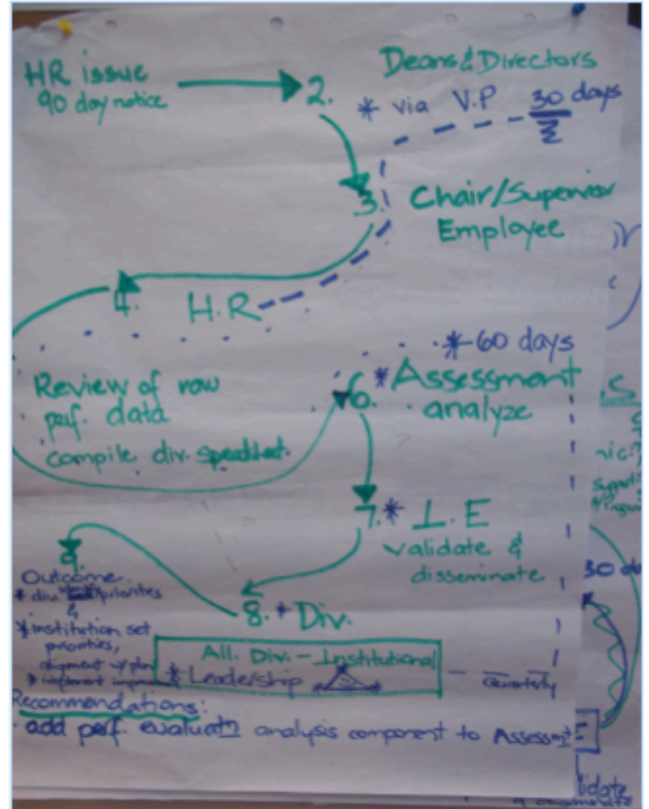 HR issue
90 day notice
2.
Deans & Directors
* via V.P 30 days
3.
Chair/Supervisor
Employee
4. H.R
* 60 days
Review of raw
perf. data
compile div.
6. * Assessment
analyze
7. * I.E
validate &
disseminate
9.
Outcome
* div. priorities
&
* institution set
priorities,
alignment w/ plan
* implement
8. * Div.
All. Div. - Institutional
* Leadership
Quarterly
Recommendations:
- add perf. evaluatn analysis component to Assessmt
30 da
lidate